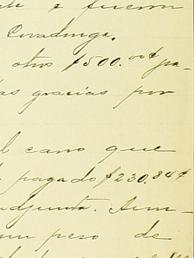 e fueron
Covadonga.
otros $500.00¢ pa-
as gracias por
l caso que
pagado $230,84¢
adjunta.
un peso de